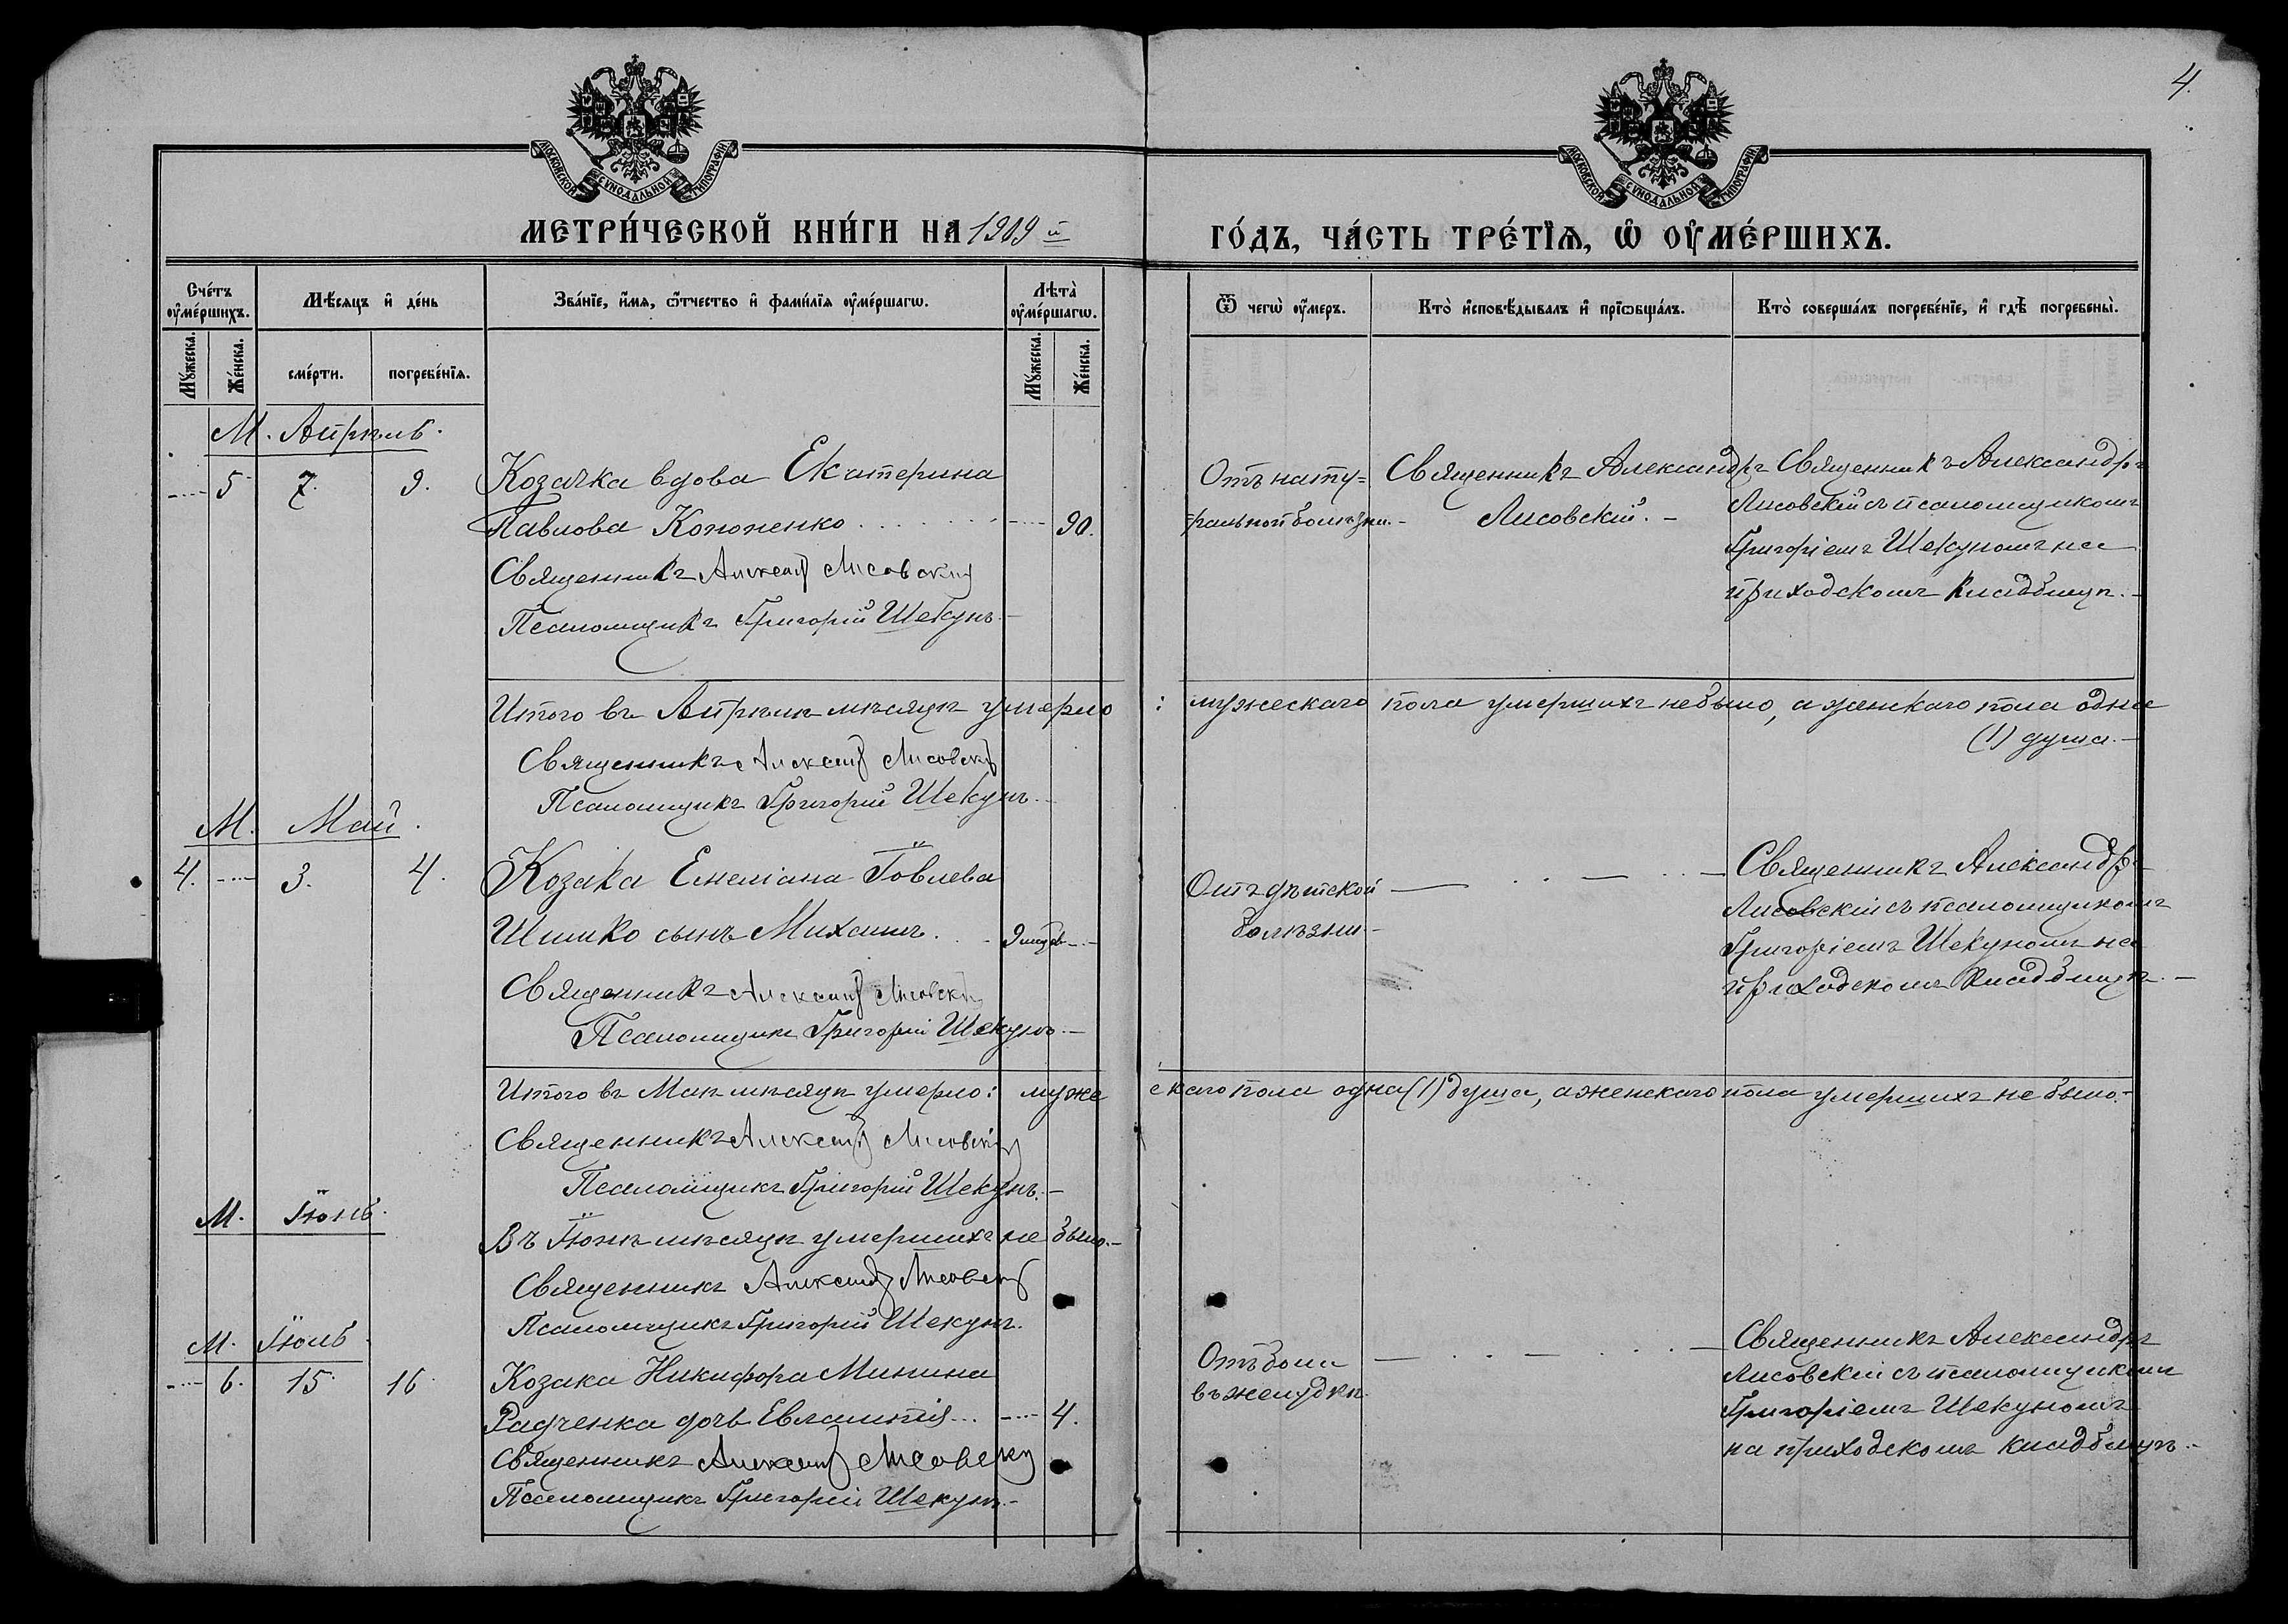 4.
МОСКОВСКОЙ СѴНОДАЛЬНОЙ ТИПОГРАФІИ
МОСКОВСКОЙ СѴНОДАЛЬНОЙ ТИПОГРАФІИ
МЕТРИ́ЧЕСКОЙ КНИ́ГИ НА 1909 й
ГО́ДЪ, ЧА́СТЬ ТРЕ́ТІѦ, Ѡ҆ ОУ҆МЕ́РШИХЪ.
Сче́тъ оу҆ме́ршихъ.
Мѣ́сѧцъ и҆ де́нь
Зва́нїе, и҆́мѧ, ѻ҆́тчество и҆ фами́лїѧ оу҆ме́ршагѡ.
Лѣ̑та̀ оу҆ме́ршагѡ.
Ѿ чегѡ̀ оу҆́меръ.
Кто̀ и҆сповѣ́дывалъ и҆ прїѡбща́лъ.
Кто̀ соверша́лъ погребе́нїе, и҆ гдѣ̀ погребены̀.
Мꙋ́жеска.
Же́нска.
сме́рти.
погребе́нїѧ.
Мꙋ́жеска.
Же́нска.
М. Апрѣль.
5 7. 9. Козачка вдова Екатерина
Павлова Кононенко 90.
Священникъ Александ Лисовский
Псаломщикъ Григорій Шекунъ.
Отъ нату=
ральной болѣзни.
Священникъ Александръ
Лисовскій.
Священникъ Александръ
Лисовскій съ псаломщикомъ
Григоріемъ Шекуномъ на
приходскомъ кладбищѣ.
Итого въ Апрѣлѣ мѣсяцѣ умерло: мужескаго пола умершихъ не было, а женскаго пола одна
(1) душа.
Священникъ Александ Лисовскій
Псаломщикъ Григорій Шекунъ.
М. Май.
4. 3. 4. Козака Емеліана Іовлева
Шишко сынъ Михаилъ
Священникъ Александ Лисовскій
Псаломщикъ Григорій Шекунъ.
Отъ дѣтской
болѣзни.
Священникъ Александръ
Лисовскій съ псаломщикомъ
Григоріемъ Шекуномъ на
приходскомъ кладбищѣ.
Итого въ Маѣ мѣсяцѣ умерло: мужескаго пола одна (1) душа, а женскаго пола умершихъ не было.
Священникъ Александ Лисовскій
Псаломщикъ Григорій Шекунъ.
М. Іюнь.
Въ Іюнѣ мѣсяцѣ умершихъ не было.
Священникъ Александ Лисовскій
Псаломщикъ Григорій Шекунъ.
М. Іюль.
6. 15. 16. Козака Никифора Минина
Радченка дочь Евлампія 4.
Священникъ Александ Лисовскій
Псаломщикъ Григорій Шекунъ.
Отъ боли
въ желудкѣ.
Священникъ Александръ
Лисовскій съ псаломщикомъ
Григоріемъ Шекуномъ
на приходскомъ кладбищѣ.